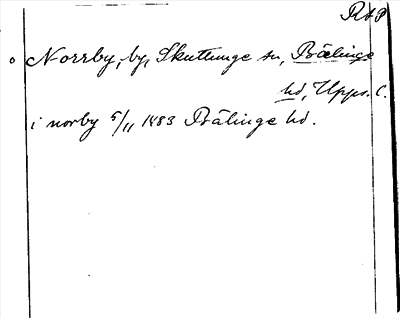 RAP
Norrby, by, Skuttunge sn, Bälinge
hd, Upps. l.
i norby 5/11 1483 Bälinge hd.